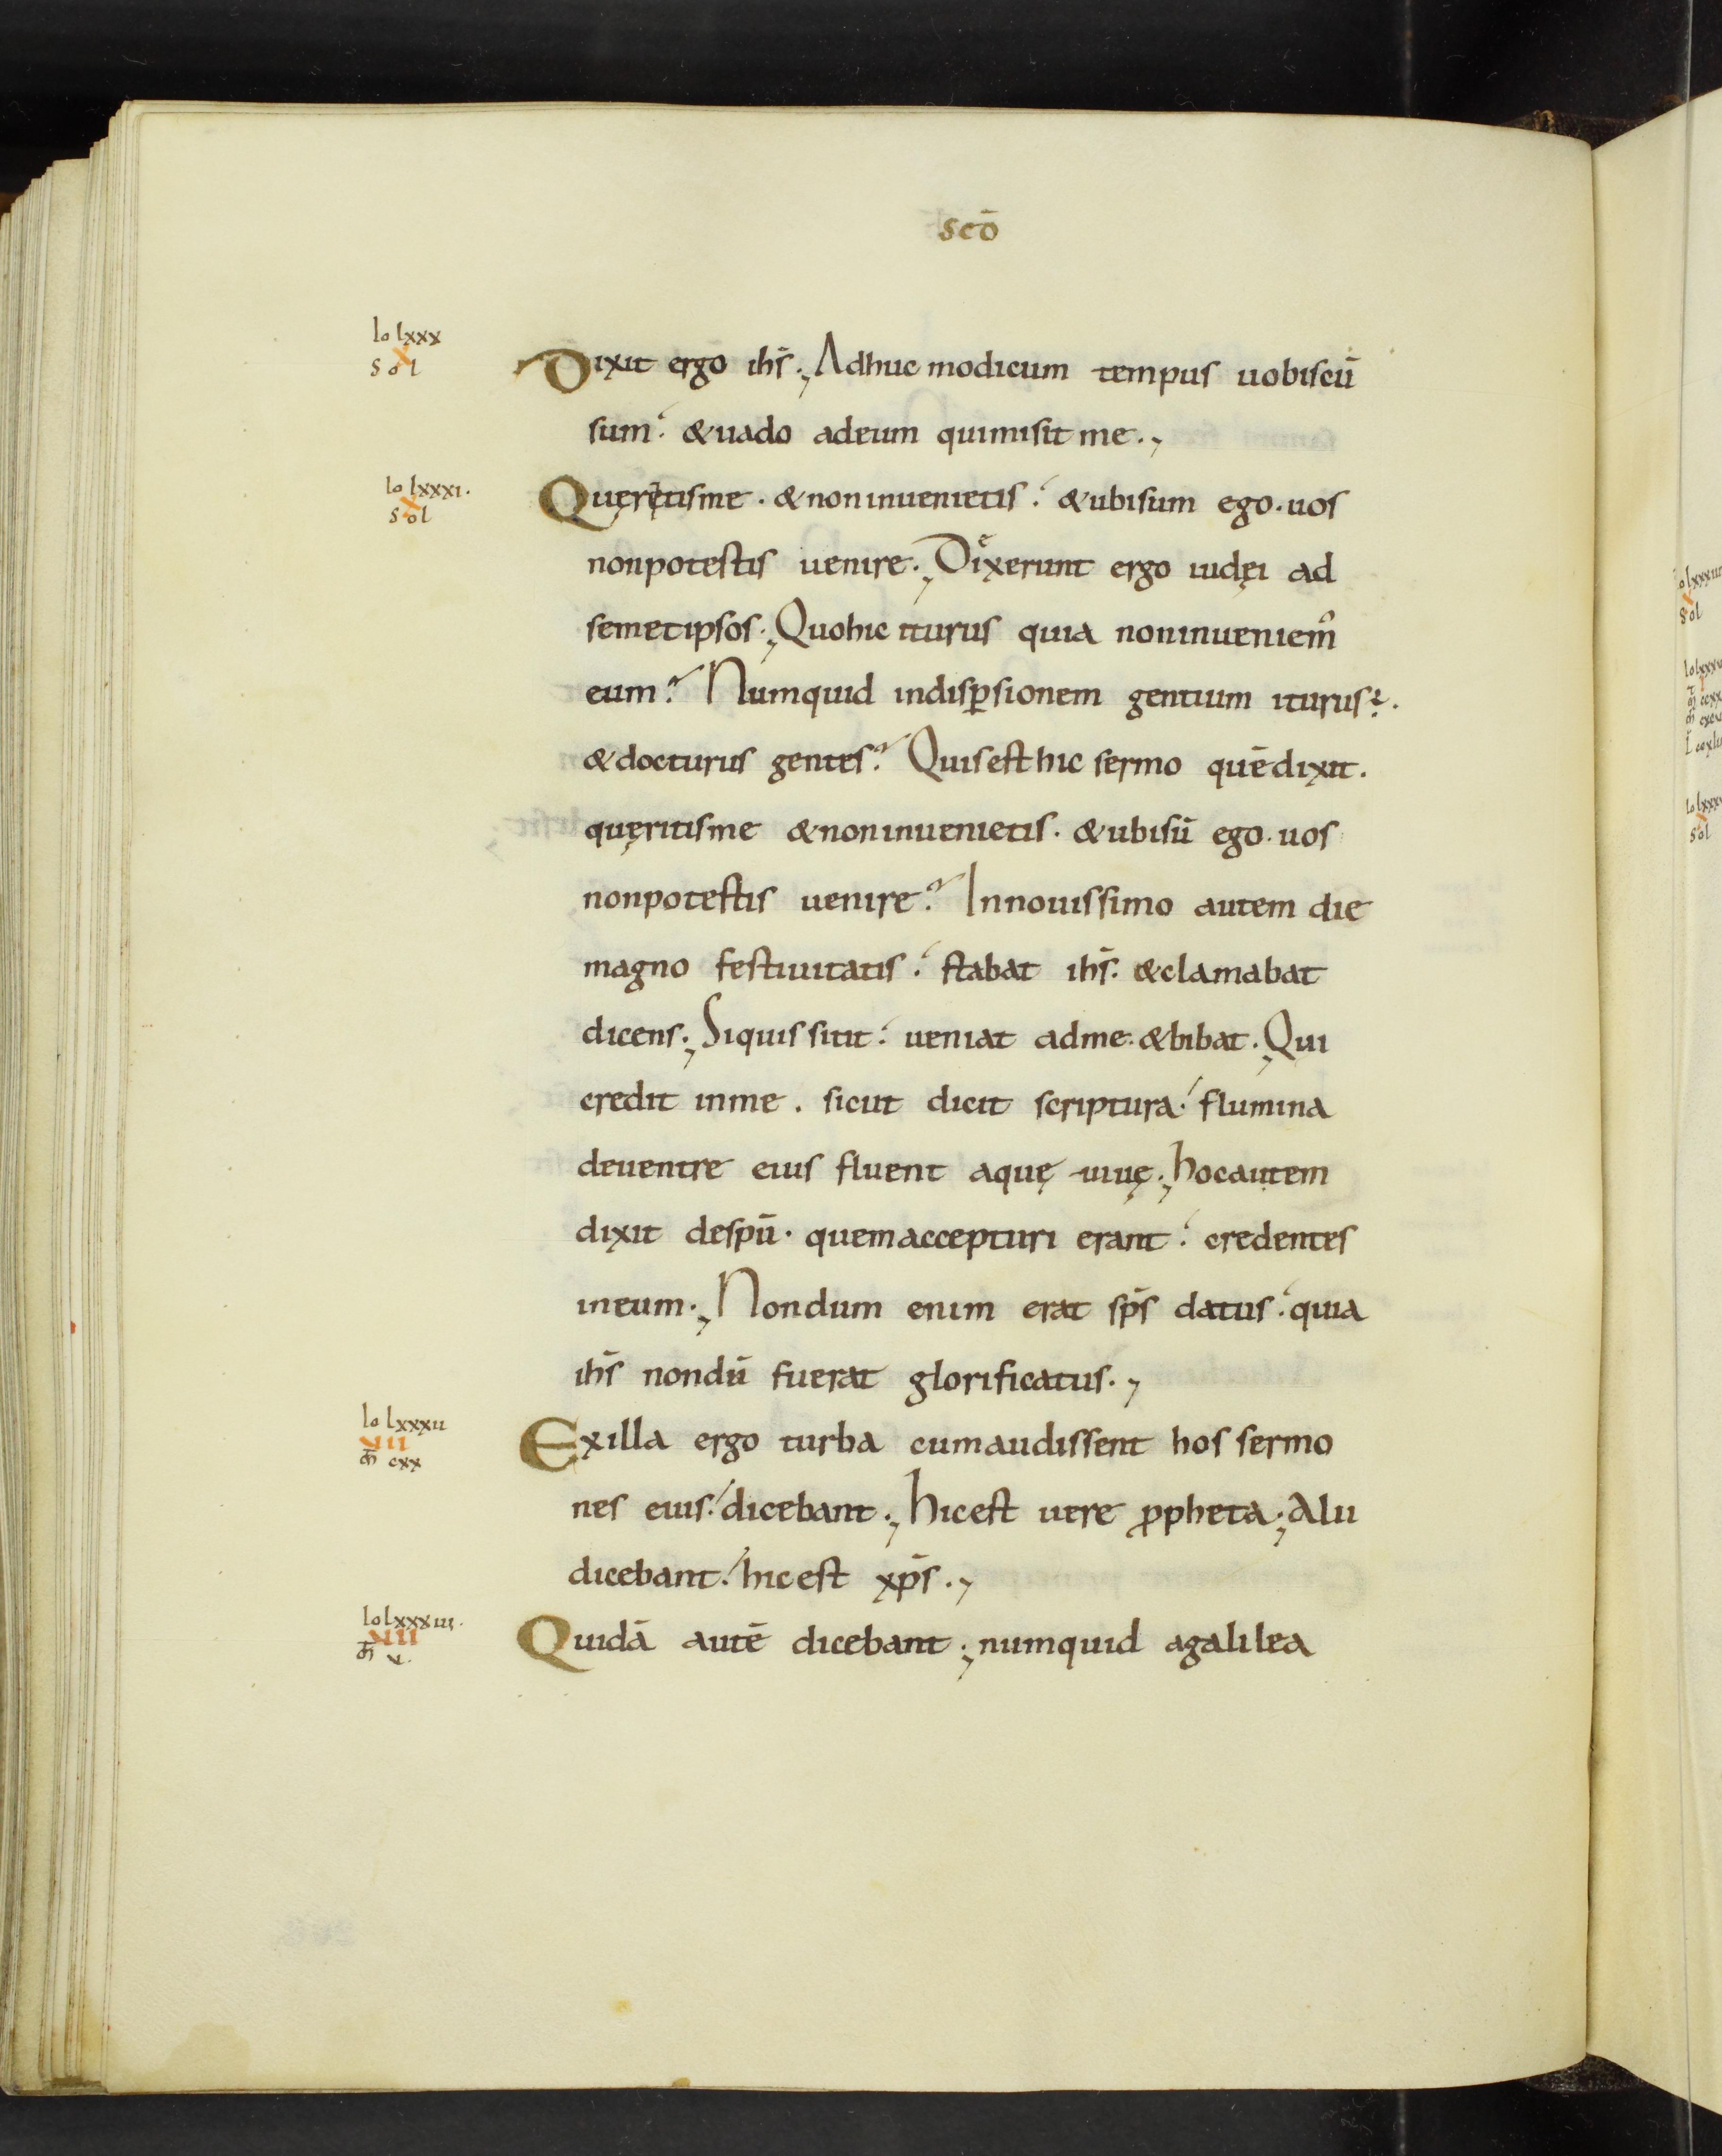 scō
lo lxxx
X
sol
Dixit ergo ihs̄. Adhuc modicum tempus uobiscū
sum. & uado adeum quimisit me.
lo lxxxi.
X
sol
Queretisme. & noninuenietis. & ubisum ego. uos
nonpotestis uenire. Dixerunt ergo iudęi ad
semetipsos. Quohic iturus quia noninueniem᷒
eum? Numquid indisꝑsionem gentium iturus?
& docturus gentes? Quisest hic sermo quēdixit.
quęritisme & noninuenietis. & ubisū ego. uos
nonpotestis uenire? Innouissimo autem die
magno festiuitatis. stabat ihs̄. & clamabat
dicens. Siquis sitit. ueniat adme. & bibat. Qui
credit inme. sicut dicit scriptura. flumina
deuentre eius fluent aquę uiuę. hocautem
dixit despū. quemaccepturi erant. credentes
ineum. Nondum enim erat sps̄ datus. quia
ihs̄ nondū fuerat glorificatus.
lo lxxxii
VII
m̄ cxx
Exilla ergo turba cumaudissent hos sermo
nes eius. dicebant. hicest uere ꝓpheta. Alii
dicebant. hicest xp̄s.
lo lxxxiii.
VII
m̄ v.
Quidā autē dicebant. numquid agalilea